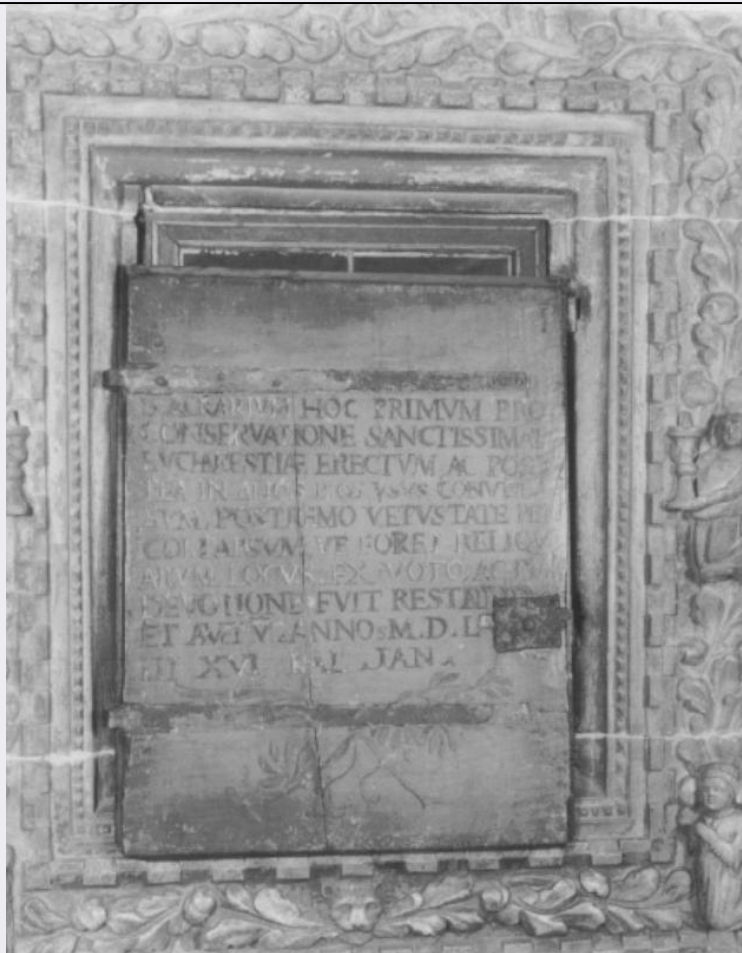 SACRARIVM HOC PRIMVM PRO
CONSERVATIONE SANCTISSIMAE
EVCHARESTIÆ ERECTVM AC POS
TEA IN ALIOS VSVS
POSTREMO VETVSTATE
COLLAPSVM VT FORET RELIQVI
LOCVS EX VOTO AC
DEVOTIONE FVIT
ET ANNO M.D.L
III XVI JAN